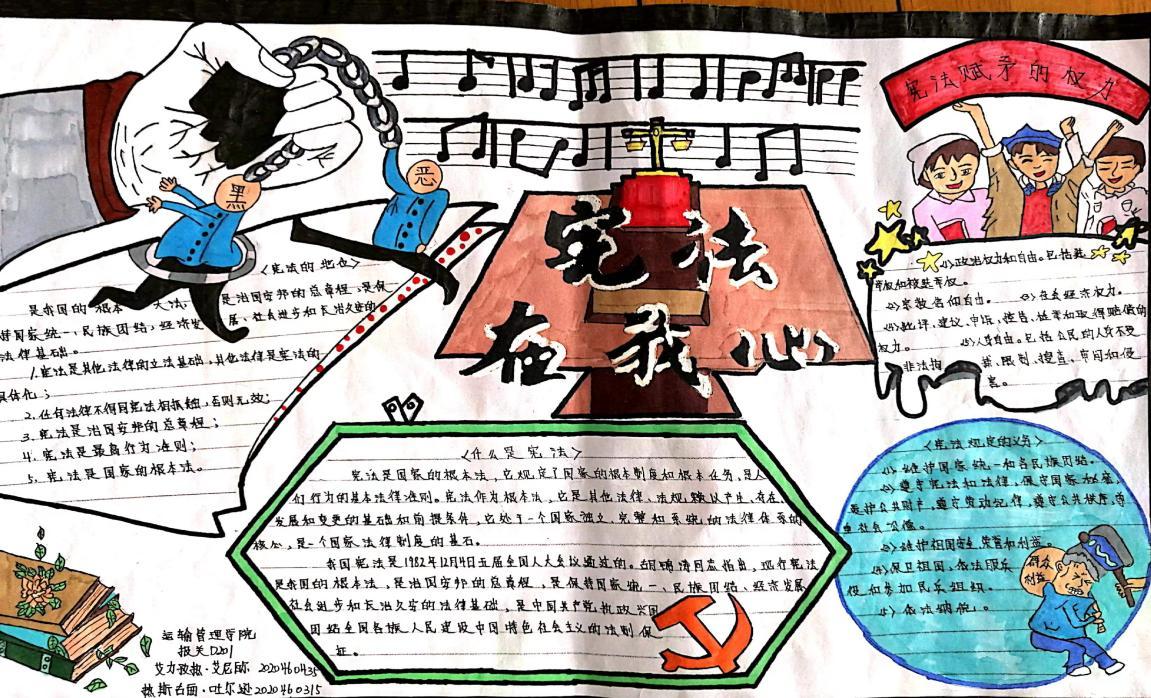 宪法在我心
黑
恶
<宪法的地位>
是我国的根本大法,是治国安邦的总章程,是保
持国家统一、民族团结、经济发展、社会进步和长治久安的
法律基础。
1.宪法是其他法律的立法基础,其他法律是宪法的
具体化;
2.任何法律不得同宪法相抵触,否则无效;
3.宪法是治国安邦的总章程;
4.宪法是最高行为准则;
5.宪法是国家的根本法。
宪法赋予的权力
<1>政治权力和自由。包括选
举权和被选举权。
<2>宗教信仰自由。 <3>社会经济权力。
<4>批评、建议、申诉、控告、检举和取得赔偿的
权力。 <5>人身自由。包括公民的人身不受
非法拘 限制、搜查、审问和侵
害。
<什么是宪法>
宪法是国家的根本法,它规定了国家的根本制度和根本任务,是人
们行为的基本法律准则。宪法作为根本法,它是其他法律、法规赖以产生、存在、
发展和变更的基础和前提条件,它处于一个国家独立、完整和系统的法律体系的
核心,是一个国家法律制度的基石。
我国宪法是1982年12月4日五届全国人大会议通过的。胡锦涛同志指出,现行宪法
是我国的根本法,是治国安邦的总章程,是保持国家统一、民族团结、经济发展
社会进步和长治久安的法律基础,是中国共产党执政兴国
团结全国各族人民建设中国特色社会主义的法制保
证。
<宪法规定的义务>
<1>维护国家统一和各民族团结。
<2>遵守宪法和法律,保守国家秘密,
爱护公共财产,遵守劳动纪律,遵守公共秩序,尊
重社会公德。
<3>维护祖国安全、荣誉和利益。
<4>保卫祖国、依法服兵
役和参加民兵组织。
<5>依法纳税。
群众
利益
运输管理学院
报关D201
艾力孜热·艾尼瓦 2020460435
热斯古丽·吐尔逊 2020460315